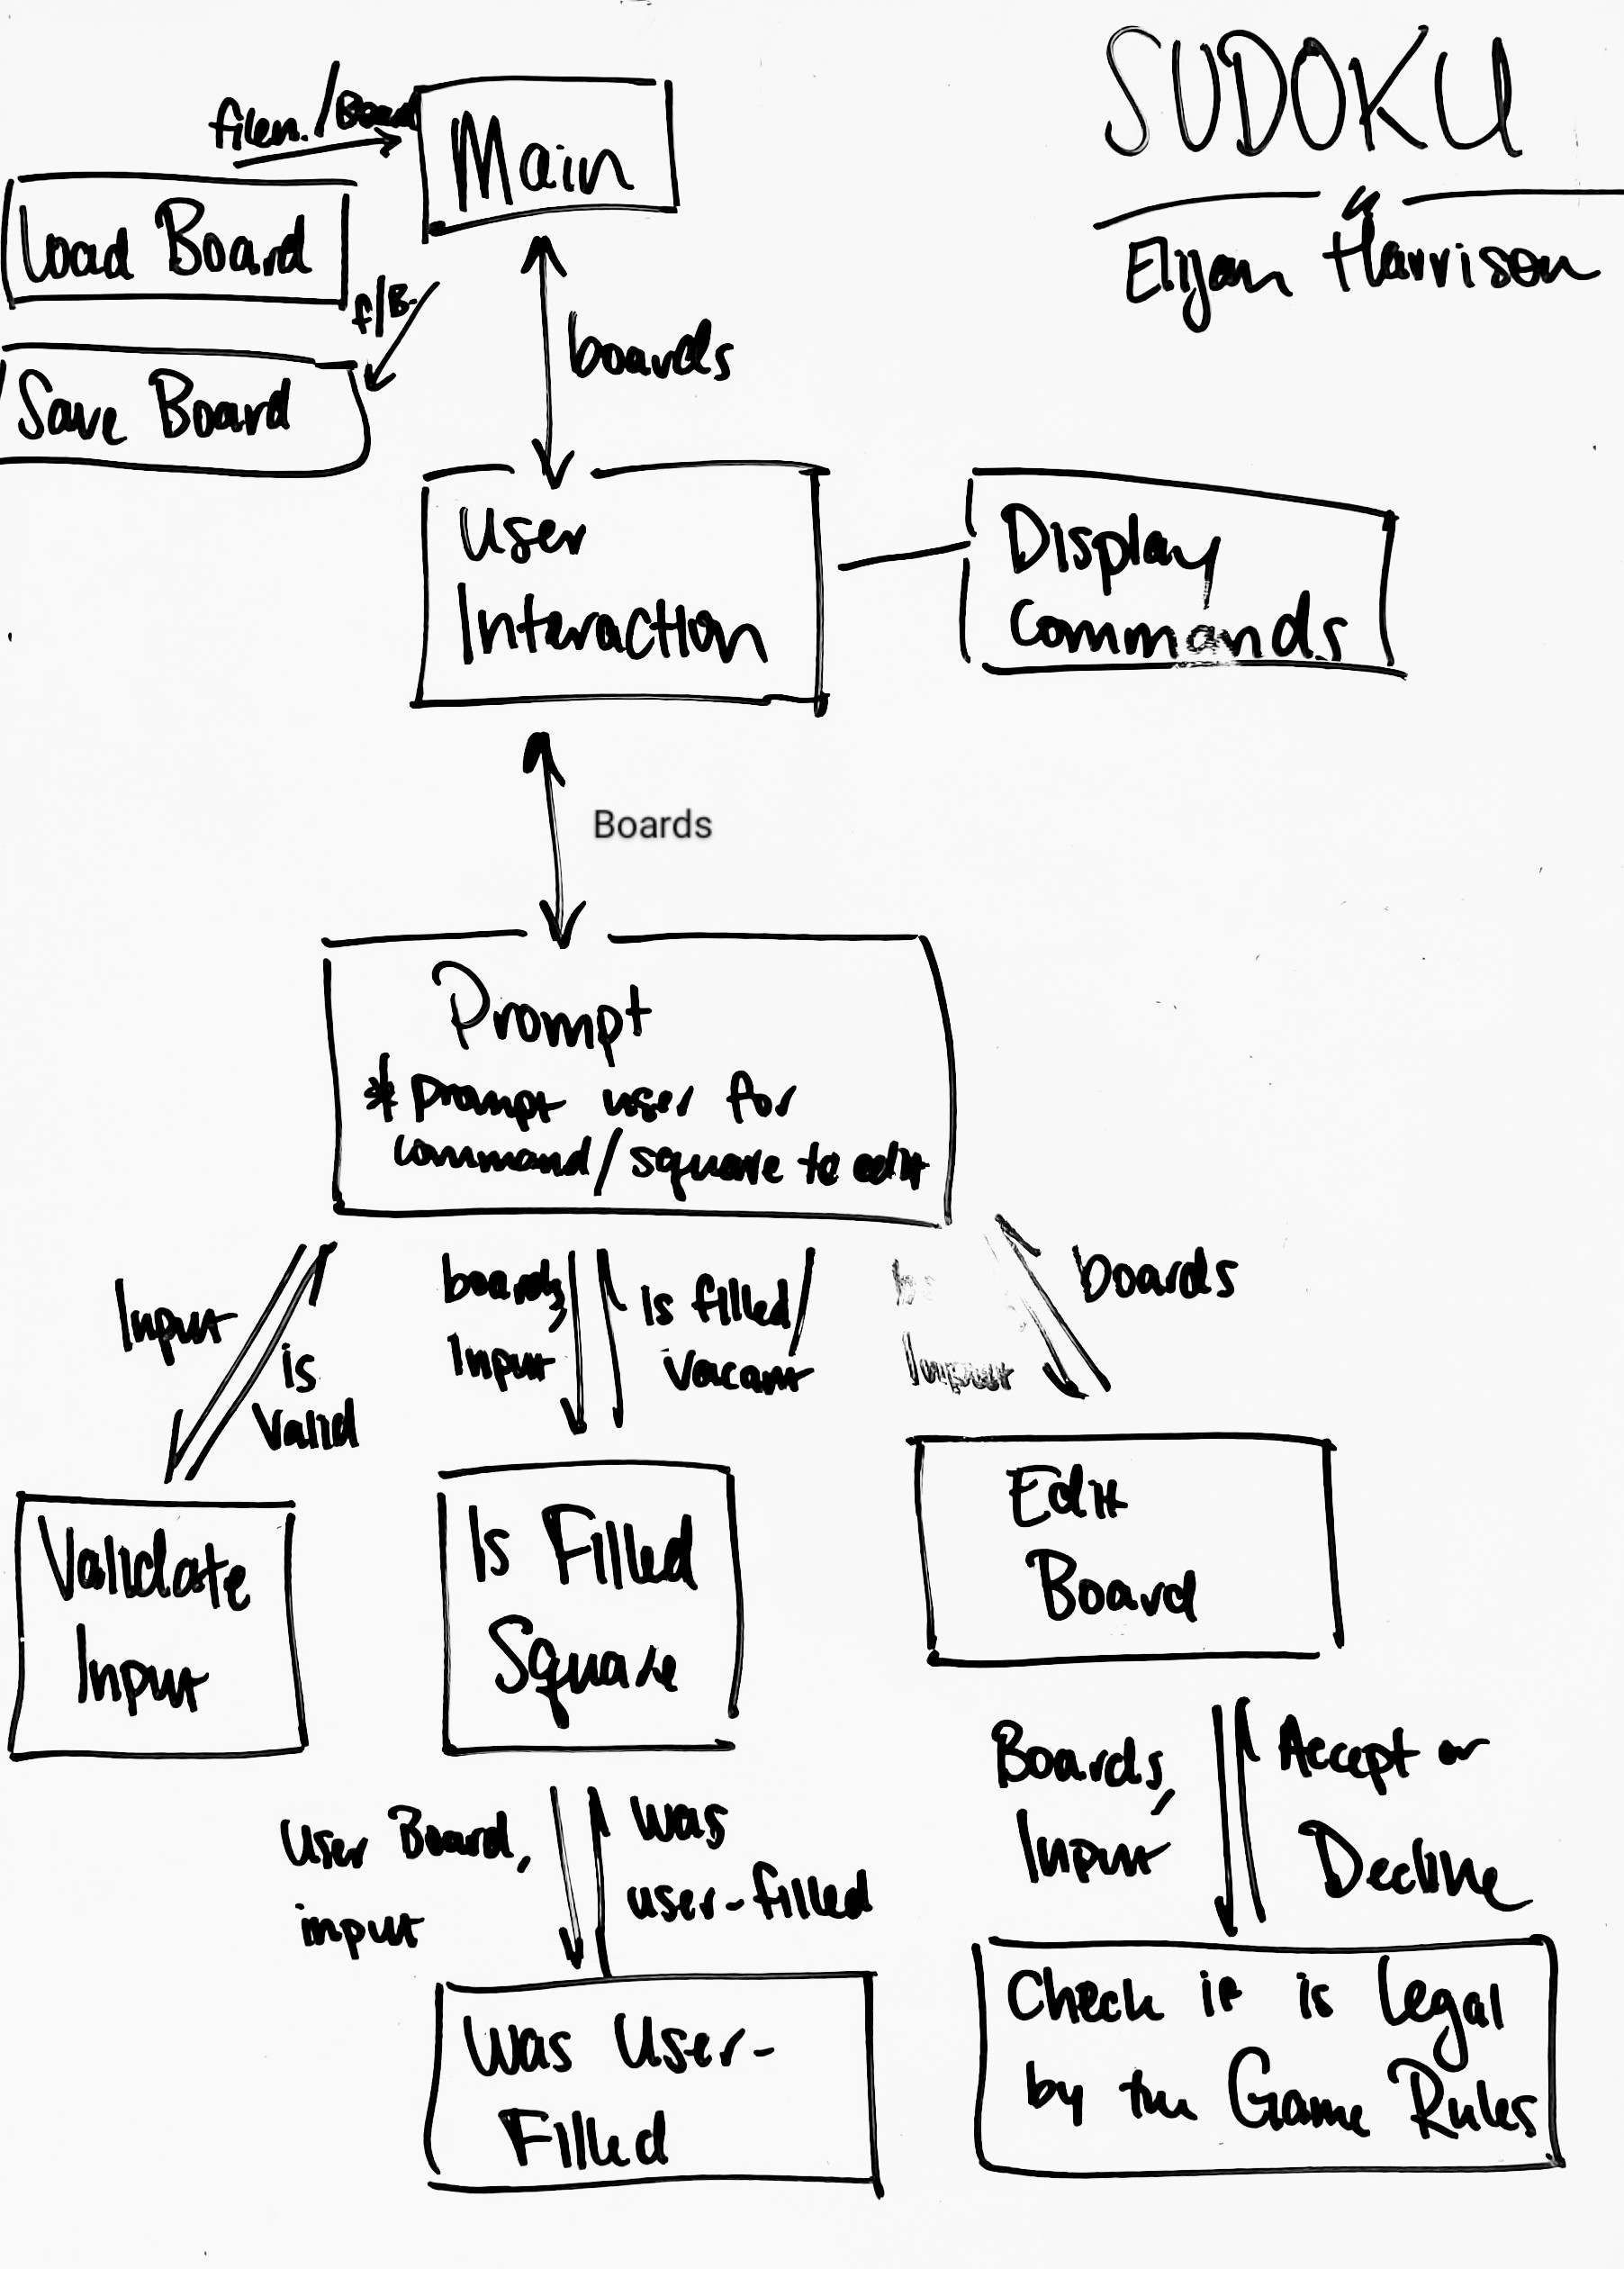 SUDOKU
Elijah Harrison
filen./Board
Main
Load Board
f/B
Save Board
boards
User
Interaction
Display
Commands
Boards
Prompt
* Prompt user for
command/square to edit
Input
is
Valid
boards,
Input
Is filled/
Vacant
Input
boards
Validate
Input
Is Filled
Square
Edit
Board
User Board,
input
was
user-filled
Boards,
Input
Accept or
Decline
Was User-
Filled
Check if is Legal
by the Game Rules